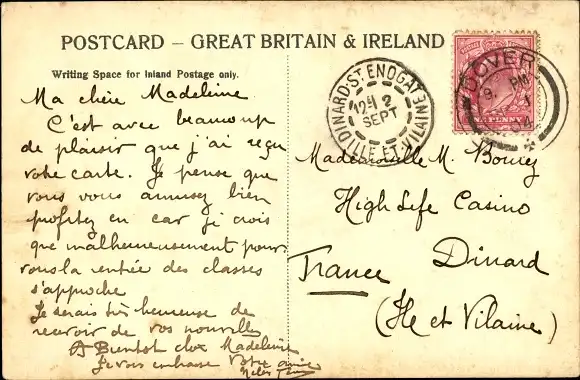 POSTCARD – GREAT BRITAIN & IRELAND
Writing Space for Inland Postage only.
Ma chère Madeleine
C'est avec beaucoup
de plaisir que j'ai reçu
votre carte. Je pense que
vous vous amusez bien
profitez en car je crois
que malheureusement pour
vous la rentrée des classes
s'approche
Je serais très heureuse de
recevoir de vos nouvelles
A Bientot chère Madeleine
Je vous embrasse Votre amie
DINARD-ST ENOGAT
2
SEPT
ILLE-ET-VILAINE
DOVER
PM
ONE PENNY
Mademoiselle M.
High Life Casino
Dinard
France
(Ile et Vilaine)